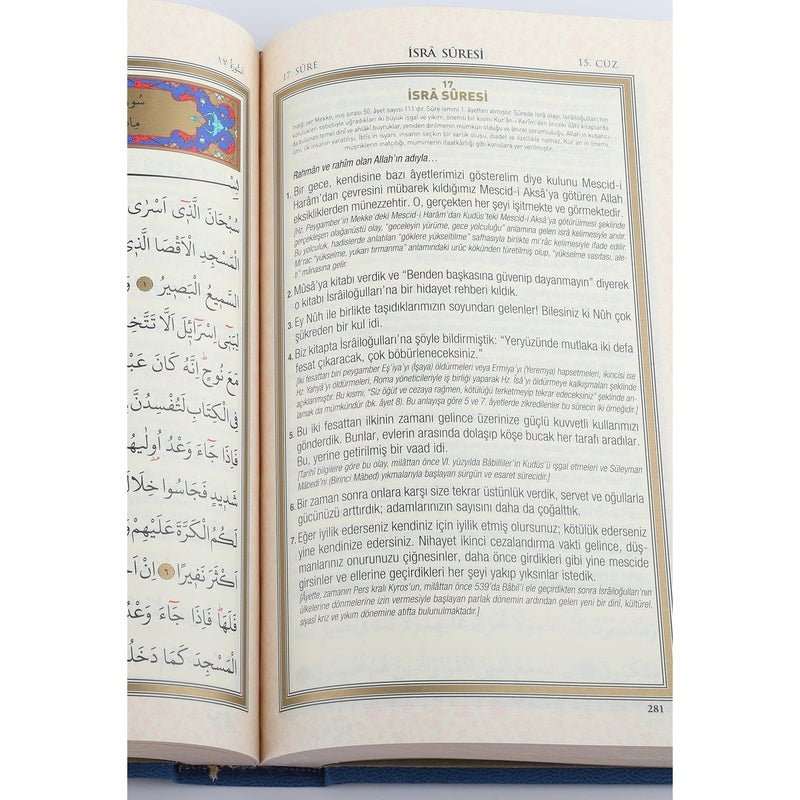 سُبْحَانَ الَّذ۪ٓي اَسْرٰى
الْمَسْجِدِ الْاَقْصَا الَّذ۪ي
السَّم۪يعُ الْبَص۪يرُ ١
لِبَن۪ٓي اِسْرَٓائ۪لَ اَلَّا تَتَّخِ
مَعَ نُوحٍ اِنَّهُ كَانَ عَبْ
فِي الْكِتَابِ لَتُفْسِدُنَّ
فَاِذَا جَٓاءَ وَعْدُ اُو۫لٰيهُ
شَد۪يدٍ فَجَاسُوا خِلَالَ
لَكُمُ الْكَرَّةَ عَلَيْهِمْ وَ
اَكْثَرَ نَف۪يرًا ٦ اِنْ اَحْ
فَلَهَا فَاِذَا جَٓاءَ وَعْدُ
الْمَسْجِدَ كَمَا دَخَلُ
17. SÛRE İSRÂ SÛRESİ 15. CÜZ
17
İSRÂ SÛRESİ
Rahmân ve rahîm olan Allah'ın adıyla...
1. Bir gece, kendisine bazı âyetlerimizi gösterelim diye kulunu Mescid-i
Harâm'dan çevresini mübarek kıldığımız Mescid-i Aksâ'ya götüren Allah
eksikliklerden münezzehtir. O, gerçekten her şeyi işitmekte ve görmektedir.
[Hz. Peygamber'in Mekke'deki Mescid-i Harâm'dan Kudüs'teki Mescid-i Aksâ'ya götürülmesi şeklinde
gerçekleşen olağanüstü olay, "geceleyin yürüme, gece yolculuğu" anlamına gelen isrâ kelimesiyle anılır.
Bu yolculuk, hadislerde anlatılan "göklere yükseltilme" safhasıyla birlikte mi'râc kelimesiyle ifade edilir.
Mi'rac "yükselme, yukarı tırmanma" anlamındaki urûc kökünden türetilmiş olup, "yükselme vasıtası, âle-
ti" mânasına gelir.]
2. Mûsâ'ya kitabı verdik ve "Benden başkasına güvenip dayanmayın" diyerek
o kitabı İsrâiloğulları'na bir hidayet rehberi kıldık.
3. Ey Nûh ile birlikte taşıdıklarımızın soyundan gelenler! Bilesiniz ki Nûh çok
şükreden bir kul idi.
4. Biz kitapta İsrâiloğulları'na şöyle bildirmiştik: "Yeryüzünde mutlaka iki defa
fesat çıkaracak, çok böbürleneceksiniz."
[İki fesattan biri peygamber Eş'iya'yı (İşaya) öldürmeleri veya Ermiya'yı (Yeremya) hapsetmeleri, ikincisi ise
Hz. Yahyâ'yı öldürmeleri, Roma yöneticileriyle iş birliği yaparak Hz. Îsâ'yı öldürmeye kalkışmaları şeklinde
açıklanmıştır. Bu kısmı, "Siz öğüt ve cezaya rağmen, kötülüğü terketmeyip tekrar edeceksiniz" şeklinde an-
lamak da mümkündür (bk. âyet 8). Bu anlayışa göre 5 ve 7. âyetlerde zikredilenler bu sürecin iki örneğidir.]
5. Bu iki fesattan ilkinin zamanı gelince üzerinize güçlü kuvvetli kullarımızı
gönderdik. Bunlar, evlerin arasında dolaşıp köşe bucak her tarafı aradılar.
Bu, yerine getirilmiş bir vaad idi.
[Tarihî bilgilere göre bu olay, milâttan önce VI. yüzyılda Bâbilliler'in Kudüs'ü işgal etmeleri ve Süleyman
Mâbedi'ni (Birinci Mâbed) yıkmalarıyla başlayan sürgün ve esaret sürecidir.]
6. Bir zaman sonra onlara karşı size tekrar üstünlük verdik, servet ve oğullarla
gücünüzü arttırdık; adamlarınızın sayısını daha da çoğalttık.
7. Eğer iyilik ederseniz kendiniz için iyilik etmiş olursunuz; kötülük ederseniz
yine kendinize edersiniz. Nihayet ikinci cezalandırma vakti gelince, düş-
manlarınız onurunuzu çiğnesinler, daha önce girdikleri gibi yine mescide
girsinler ve ellerine geçirdikleri her şeyi yakıp yıksınlar istedik.
[Âyette, zamanın Pers kralı Kyros'un, milâttan önce 539'da Bâbil'i ele geçirdikten sonra İsrâiloğulları'nın
ülkelerine dönmelerine izin vermesiyle başlayan parlak dönemin ardından gelen yeni bir dinî, kültürel,
siyasî kriz ve yıkım dönemine atıfta bulunulmaktadır.]
281